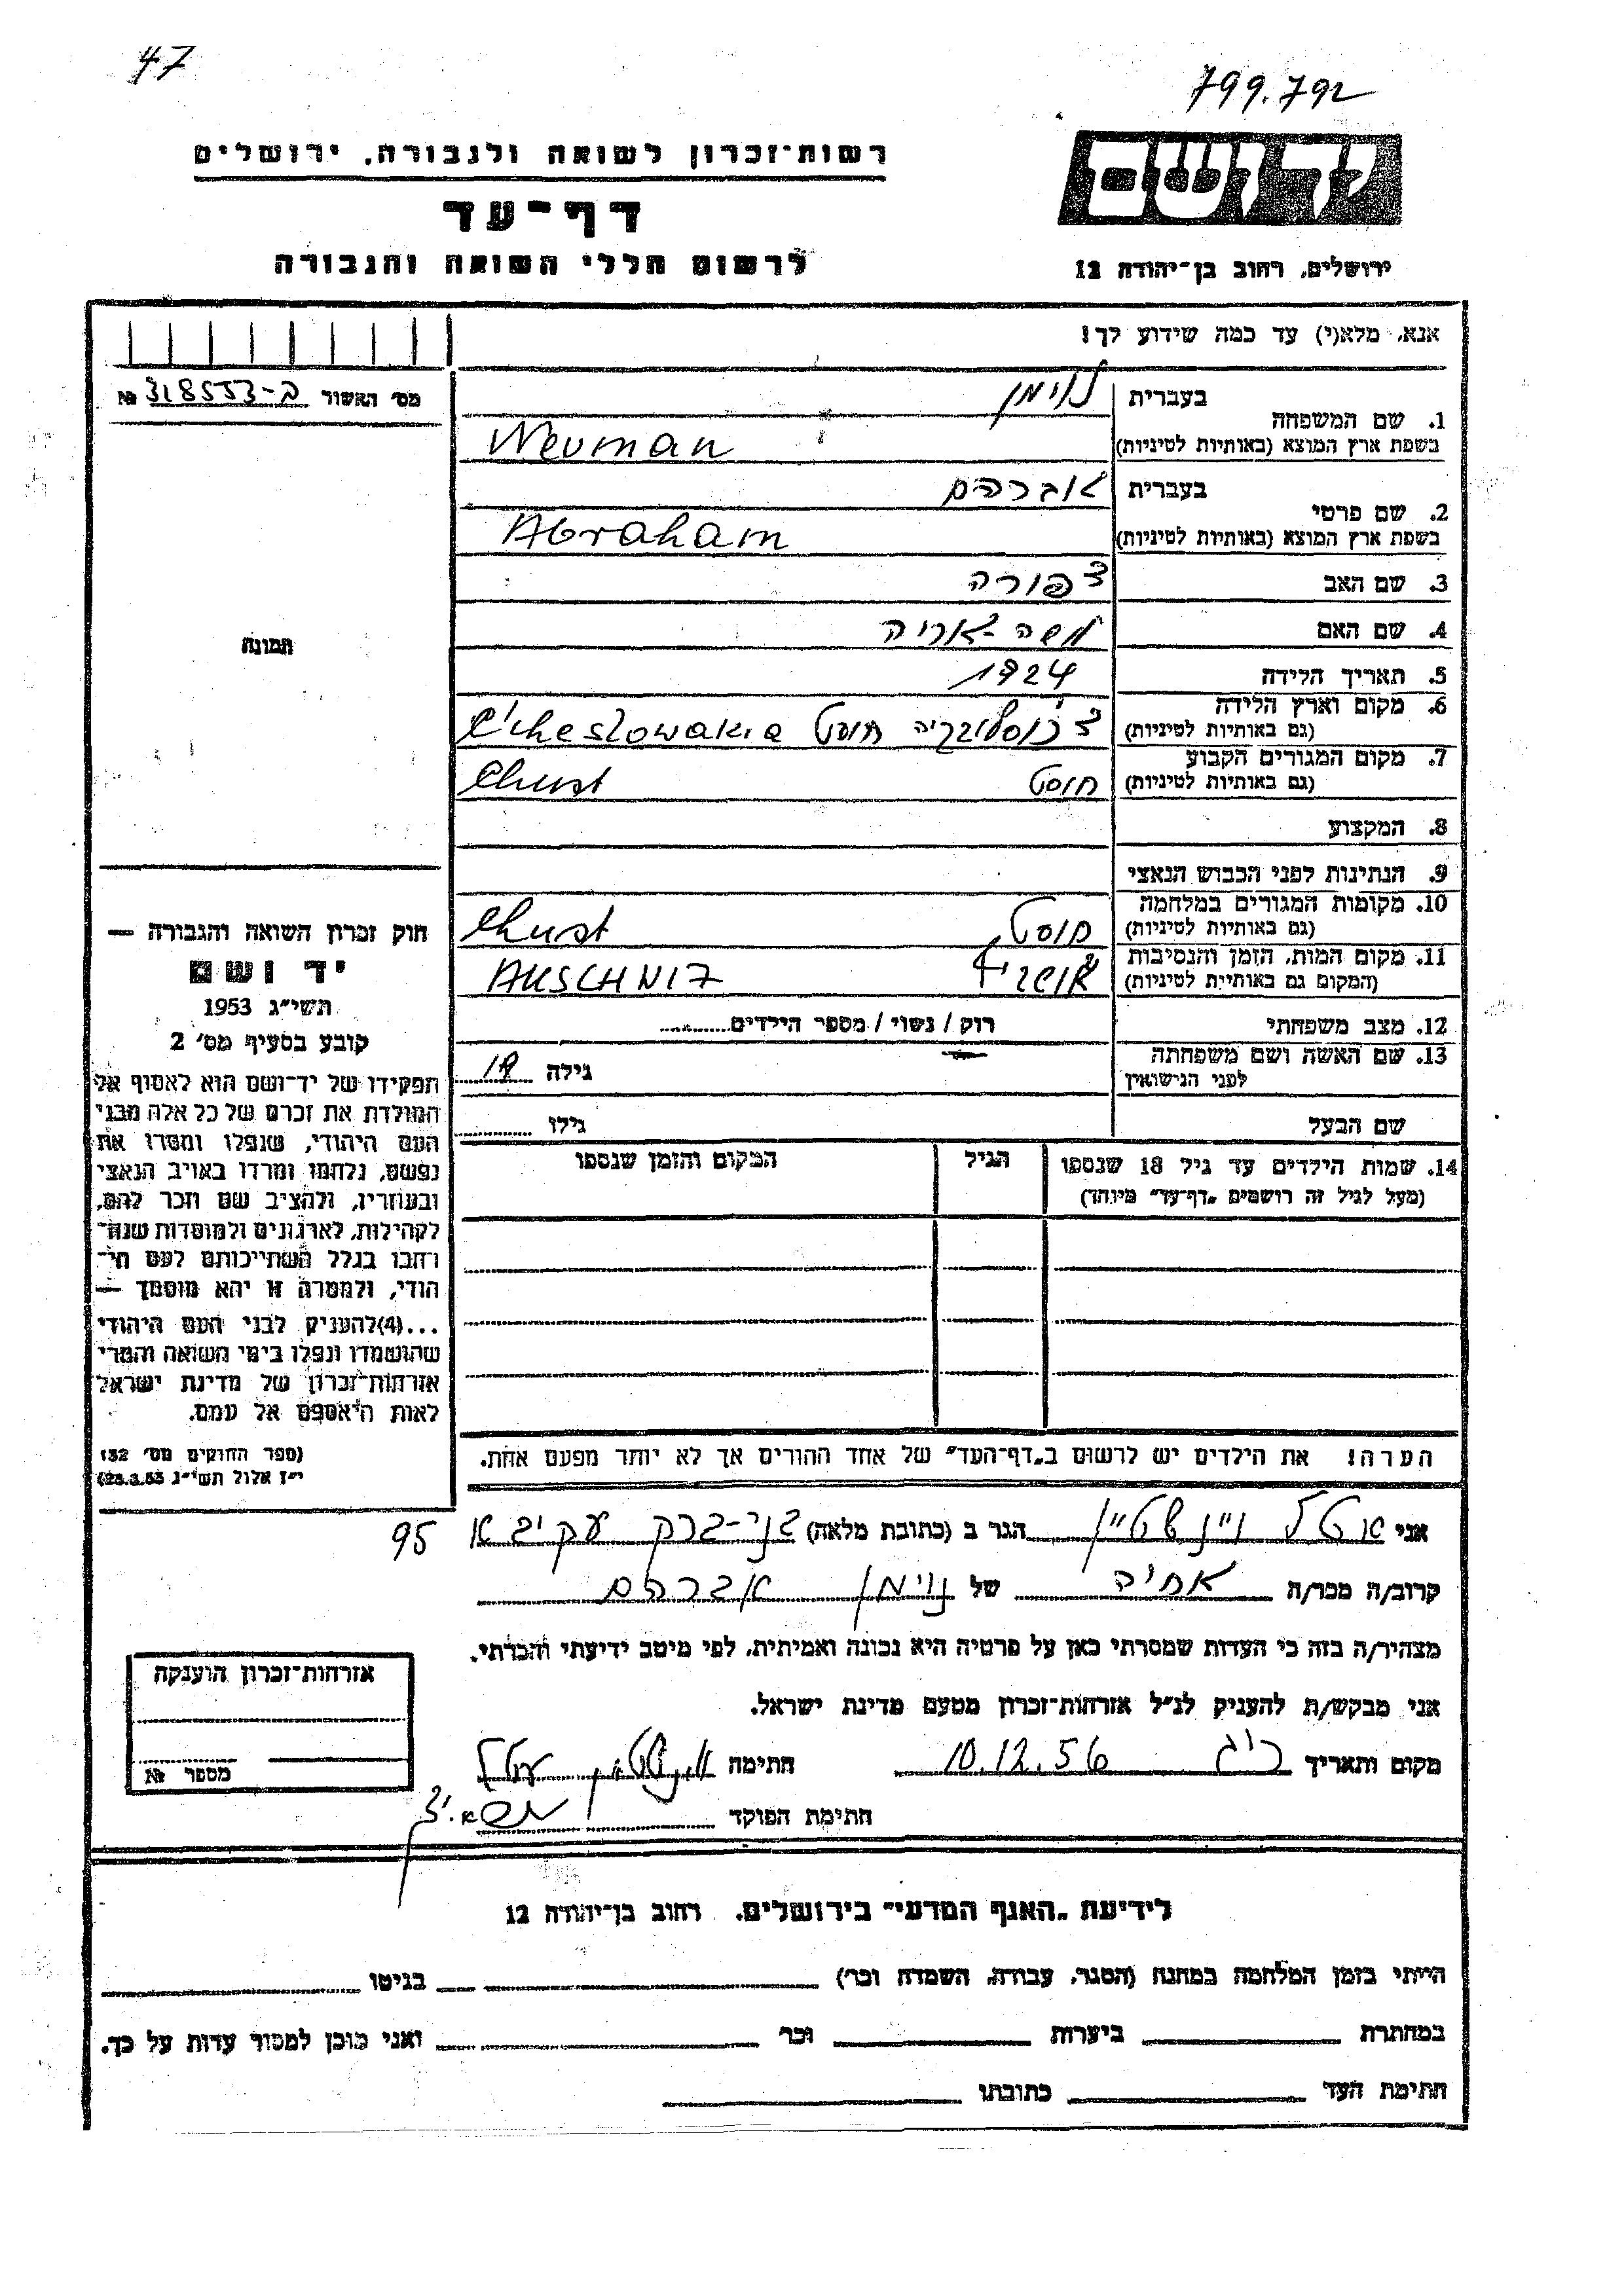 47
799.792
יד ושם
ירושלים, רחוב בן־יהודה 12
רשות־זכרון לשואה ולגבורה, ירושלים
דף־עד
לרשום חללי השואה והגבורה
אנא, מלא(י) עד כמה שידוע לך!
מס׳ האשור ב-318553 №
תמונה
1. שם המשפחה
בעברית נוימן
בשפת ארץ המוצא (באותיות לטיניות) Neuman
2. שם פרטי
בעברית אברהם
בשפת ארץ המוצא (באותיות לטיניות) Abraham
3. שם האב צפורה
4. שם האם משה-אריה
5. תאריך הלידה 1924
6. מקום וארץ הלידה
(גם באותיות לטיניות) צ'כוסלובקיה חוסט C'heslowakia
7. מקום המגורים הקבוע
(גם באותיות לטיניות) חוסט Chust
8. המקצוע
9. הנתינות לפני הכבוש הנאצי
10. מקומות המגורים במלחמה
(גם באותיות לטיניות) חוסט Chust
11. מקום המות, הזמן והנסיבות
(המקום גם באותיות לטיניות) AUSCHWIZ
12. מצב משפחתי רוק / נשוי / מספר הילדים
13. שם האשה ושם משפחתה
לפני הנישואין גילה 19
שם הבעל גילו
14. שמות הילדים עד גיל 18 שנספו הגיל המקום והזמן שנספו
(מעל לגיל זה רושמים „דף־עד״ מיוחד)
הערה! את הילדים יש לרשום ב„דף־העד״ של אחד ההורים אך לא יותר מפעם אחת.
חוק זכרון השואה והגבורה —
יד ושם
תשי״ג 1953
קובע בסעיף מס׳ 2
תפקידו של יד־ושם הוא לאסוף אל
המולדת את זכרם של כל אלה מבני
העם היהודי, שנפלו ומסרו את
נפשם, נלחמו ומרדו באויב הנאצי
ובעוזריו, ולהציב שם וזכר להם,
לקהילות, לארגונים ולמוסדות שנח־
רבו בגלל השתייכותם לעם הי־
הודי, ולמטרה זו יהא מוסמך —
...(4)להעניק לבני העם היהודי
שהושמדו ונפלו בימי השואה והמרי
אזרחות־זכרון של מדינת ישראל
לאות היאספם אל עמם.
(ספר החוקים מס׳ 132
י״ז אלול תשי״ג 28.8.53)
אני אטל ויינשטיין הגר ב (כתובת מלאה) בני-ברק עקיבא 95
קרוב/ה מכר/ה אחיה של נוימן אברהם
מצהיר/ה בזה כי העדות שמסרתי כאן על פרטיה היא נכונה ואמיתית, לפי מיטב ידיעתי והכרתי.
אני מבקש/ת להעניק לנ״ל אזרחות־זכרון מטעם מדינת ישראל.
מקום ותאריך 10.12.56 חתימה
חתימת הפוקד
אזרחות־זכרון הוענקה
מספר №
לידיעת „האגף המדעי״ בירושלים. רחוב בן־יהודה 12
הייתי בזמן המלחמה במחנה (הסגר, עבודה, השמדה וכו׳) בגיטו
במחתרת ביערות וכו׳ ואני מוכן למסור עדות על כך.
חתימת העד כתובתו